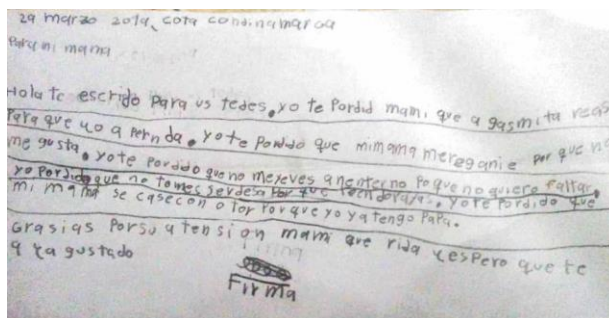 29 marzo 2019, cota condinamarca
Para mi mama
Hola te escrido para us tedes, yo te Pordid mami que a gasmita reas
Para que yo a Pernda, yo te Pordido que mi mama mereganie por que no
me gusta, yo te Pordido que no me yeves a nenterno Po que no quiero faltar,
yo Pordido que no tomes serdesa Por que teendorajas, yo te Pordido que
mi mama se case con o tor Por que yo ya tengo PaPa.
Grasias Por su a tension mami que rida y esPero que te
a ya gustado
Firma